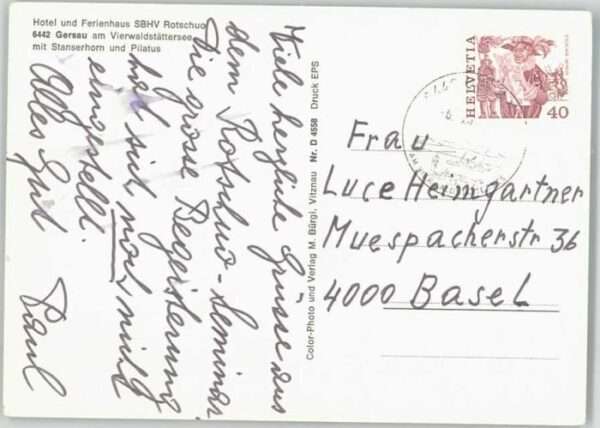 Hotel und Ferienhaus SBHV Rotschuo
6442 Gersau am Vierwaldstättersee
mit Stanserhorn und Pilatus
Viele herzliche Grüsse aus
dem Rotschuo-Seminar.
Die grosse Begeisterung
hat sich noch nicht
eingestellt.
Alles Gute
Paul
Color-Photo und Verlag M. Bürgi, Vitznau Nr. D 4558 Druck EPS
HELVETIA
40
Frau
Luce Heimgartner
Muespacherstr 36
4000 Basel